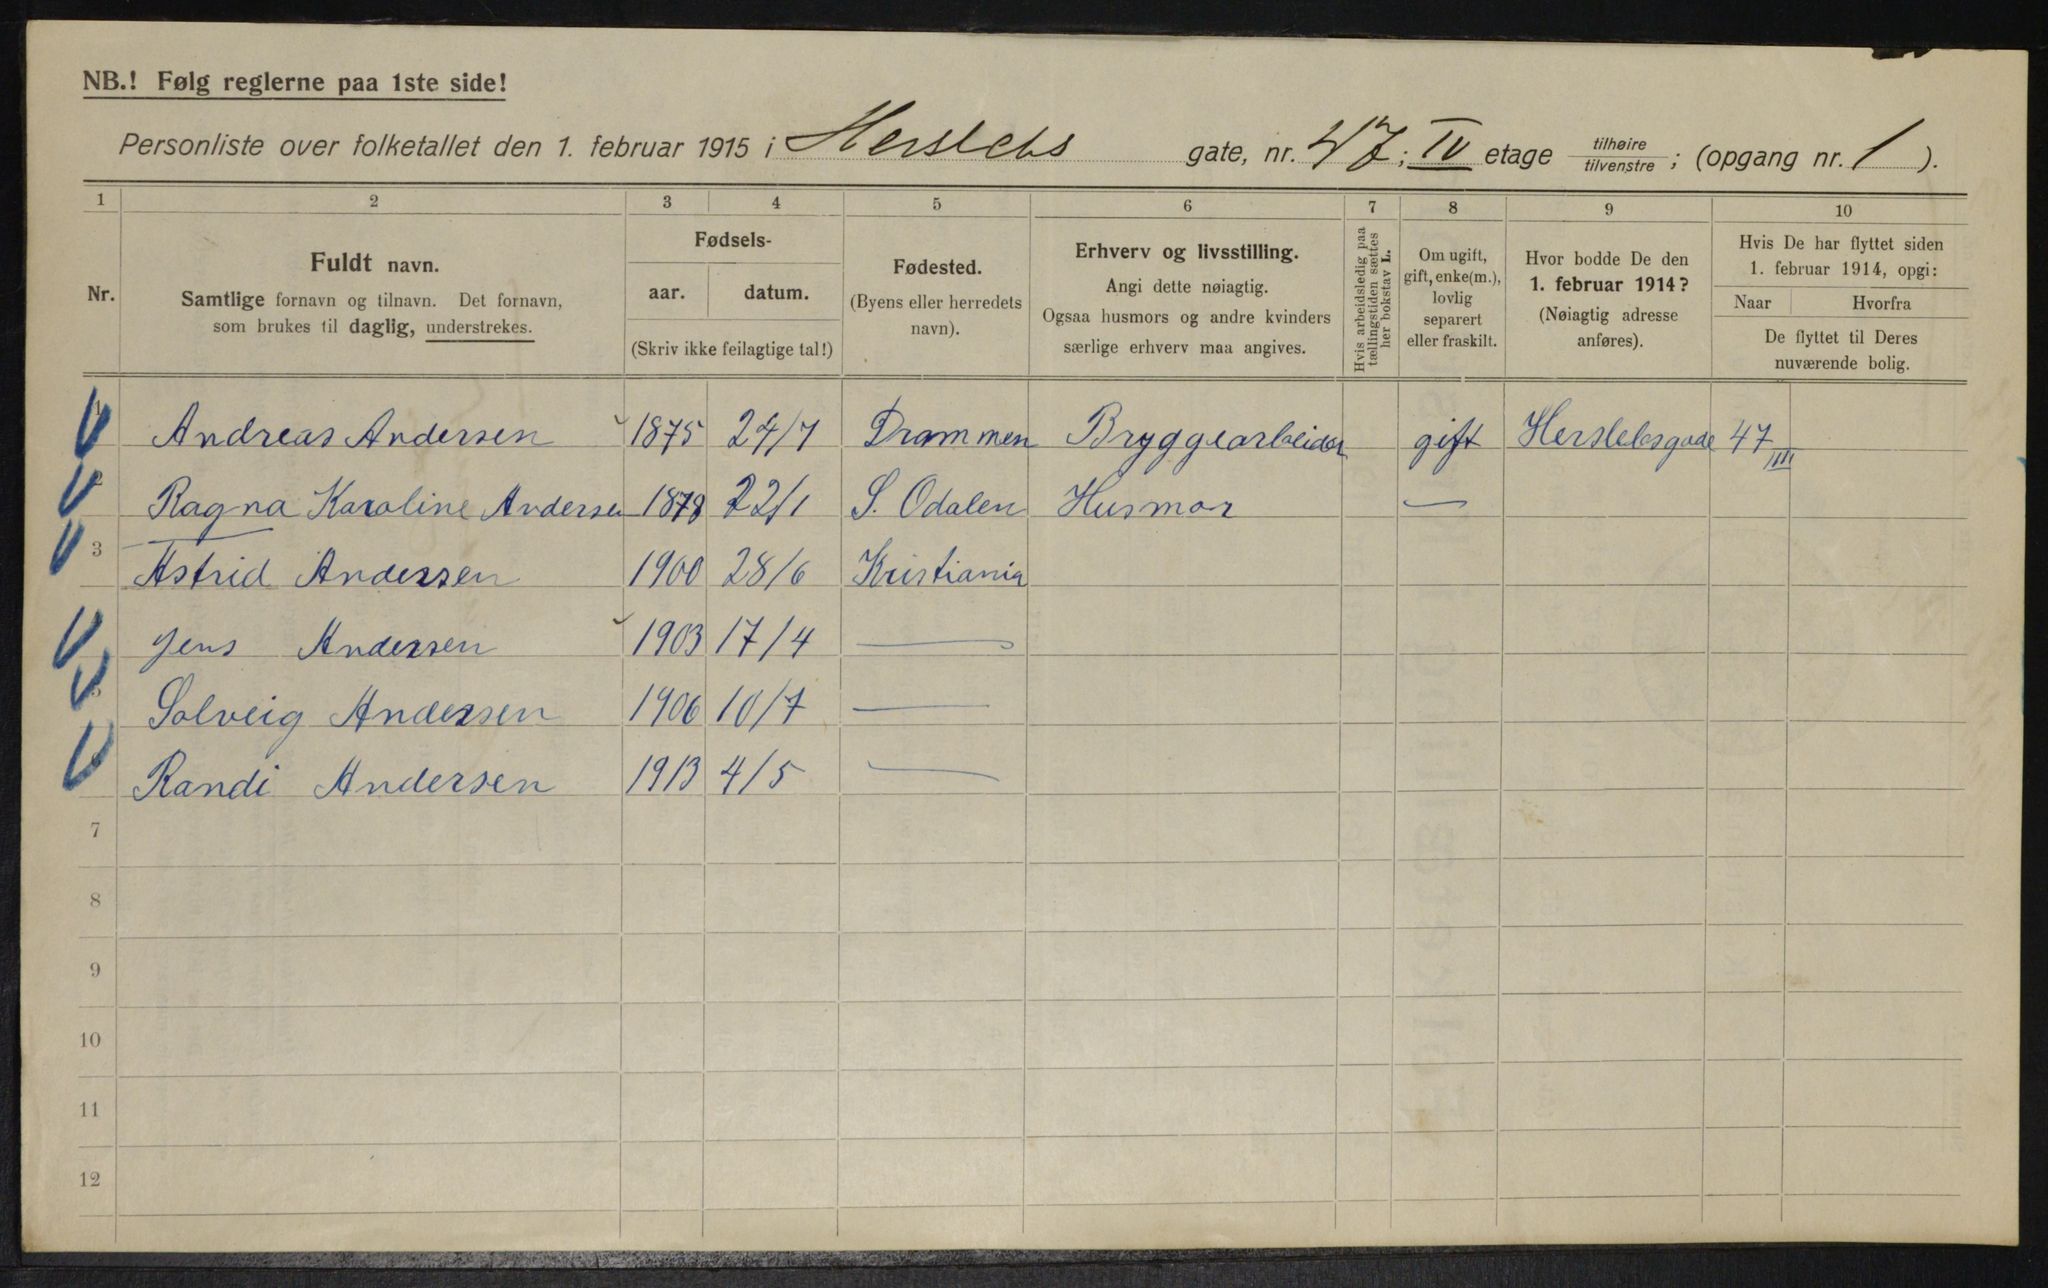 NB.! Følg reglerne paa 1ste side!
Personliste over folketallet den 1. februar 1915 i Herslebs gate, nr. 47; IV etage tilhøire / tilvenstre ; (opgang nr. 1 ).
1 2 3 4 5 6 7 8 9 10
Nr.
Fuldt navn.
Samtlige fornavn og tilnavn. Det fornavn,
som brukes til daglig, understrekes.
Fødsels-
aar. datum.
(Skriv ikke feilagtige tal!)
Fødested.
(Byens eller herredets
navn).
Erhverv og livsstilling.
Angi dette nøiagtig.
Ogsaa husmors og andre kvinders
særlige erhverv maa angives.
Hvis arbeidsledig paa
tællingstiden sættes
her bokstav L.
Om ugift,
gift, enke(m.),
lovlig
separert
eller fraskilt.
Hvor bodde De den
1. februar 1914?
(Nøiagtig adresse
anføres).
Hvis De har flyttet siden
1. februar 1914, opgi:
Naar Hvorfra
De flyttet til Deres
nuværende bolig.
1 Andreas Andersen 1875 24/7 Drammen Bryggearbeider gift Herslebsgade 47 IIII
2 Ragna Karoline Andersen 1878 22/1 S. Odalen Husmor —
3 Astrid Andersen 1900 28/6 Kristiania
Jens Andersen 1903 17/4 —
5 Solveig Andersen 1906 10/7 —
6 Randi Andersen 1913 4/5 —
7
8
9
10
11
12